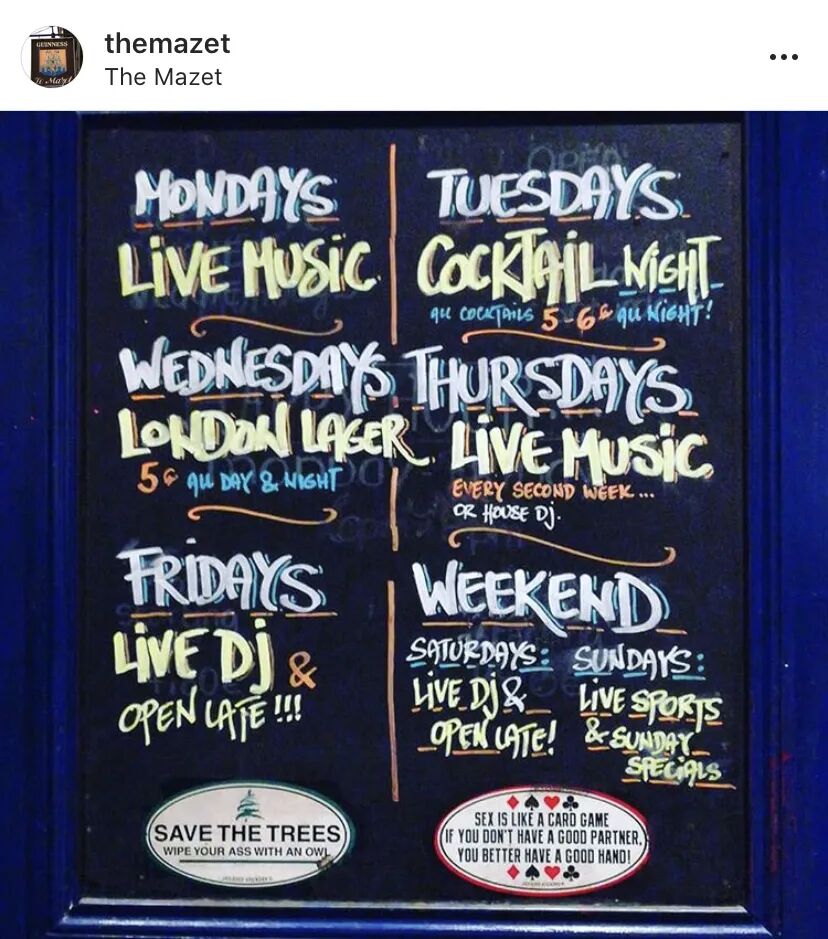 GUINNESS
themazet
The Mazet
MONDAYS
LIVE MUSIC
TUESDAYS
COCKTAIL NIGHT
ALL COCKTAILS 5-6€ ALL NIGHT!
WEDNESDAYS
LONDON LAGER
5€ ALL DAY & NIGHT
THURSDAYS
LIVE MUSIC
EVERY SECOND WEEK...
OR HOUSE DJ.
FRIDAYS
LIVE DJ &
OPEN LATE!!!
WEEKEND
SATURDAYS:
LIVE DJ &
OPEN LATE!
SUNDAYS:
LIVE SPORTS
& SUNDAY
SPECIALS
SAVE THE TREES
WIPE YOUR ASS WITH AN OWL
SEX IS LIKE A CARD GAME
IF YOU DON'T HAVE A GOOD PARTNER,
YOU BETTER HAVE A GOOD HAND!